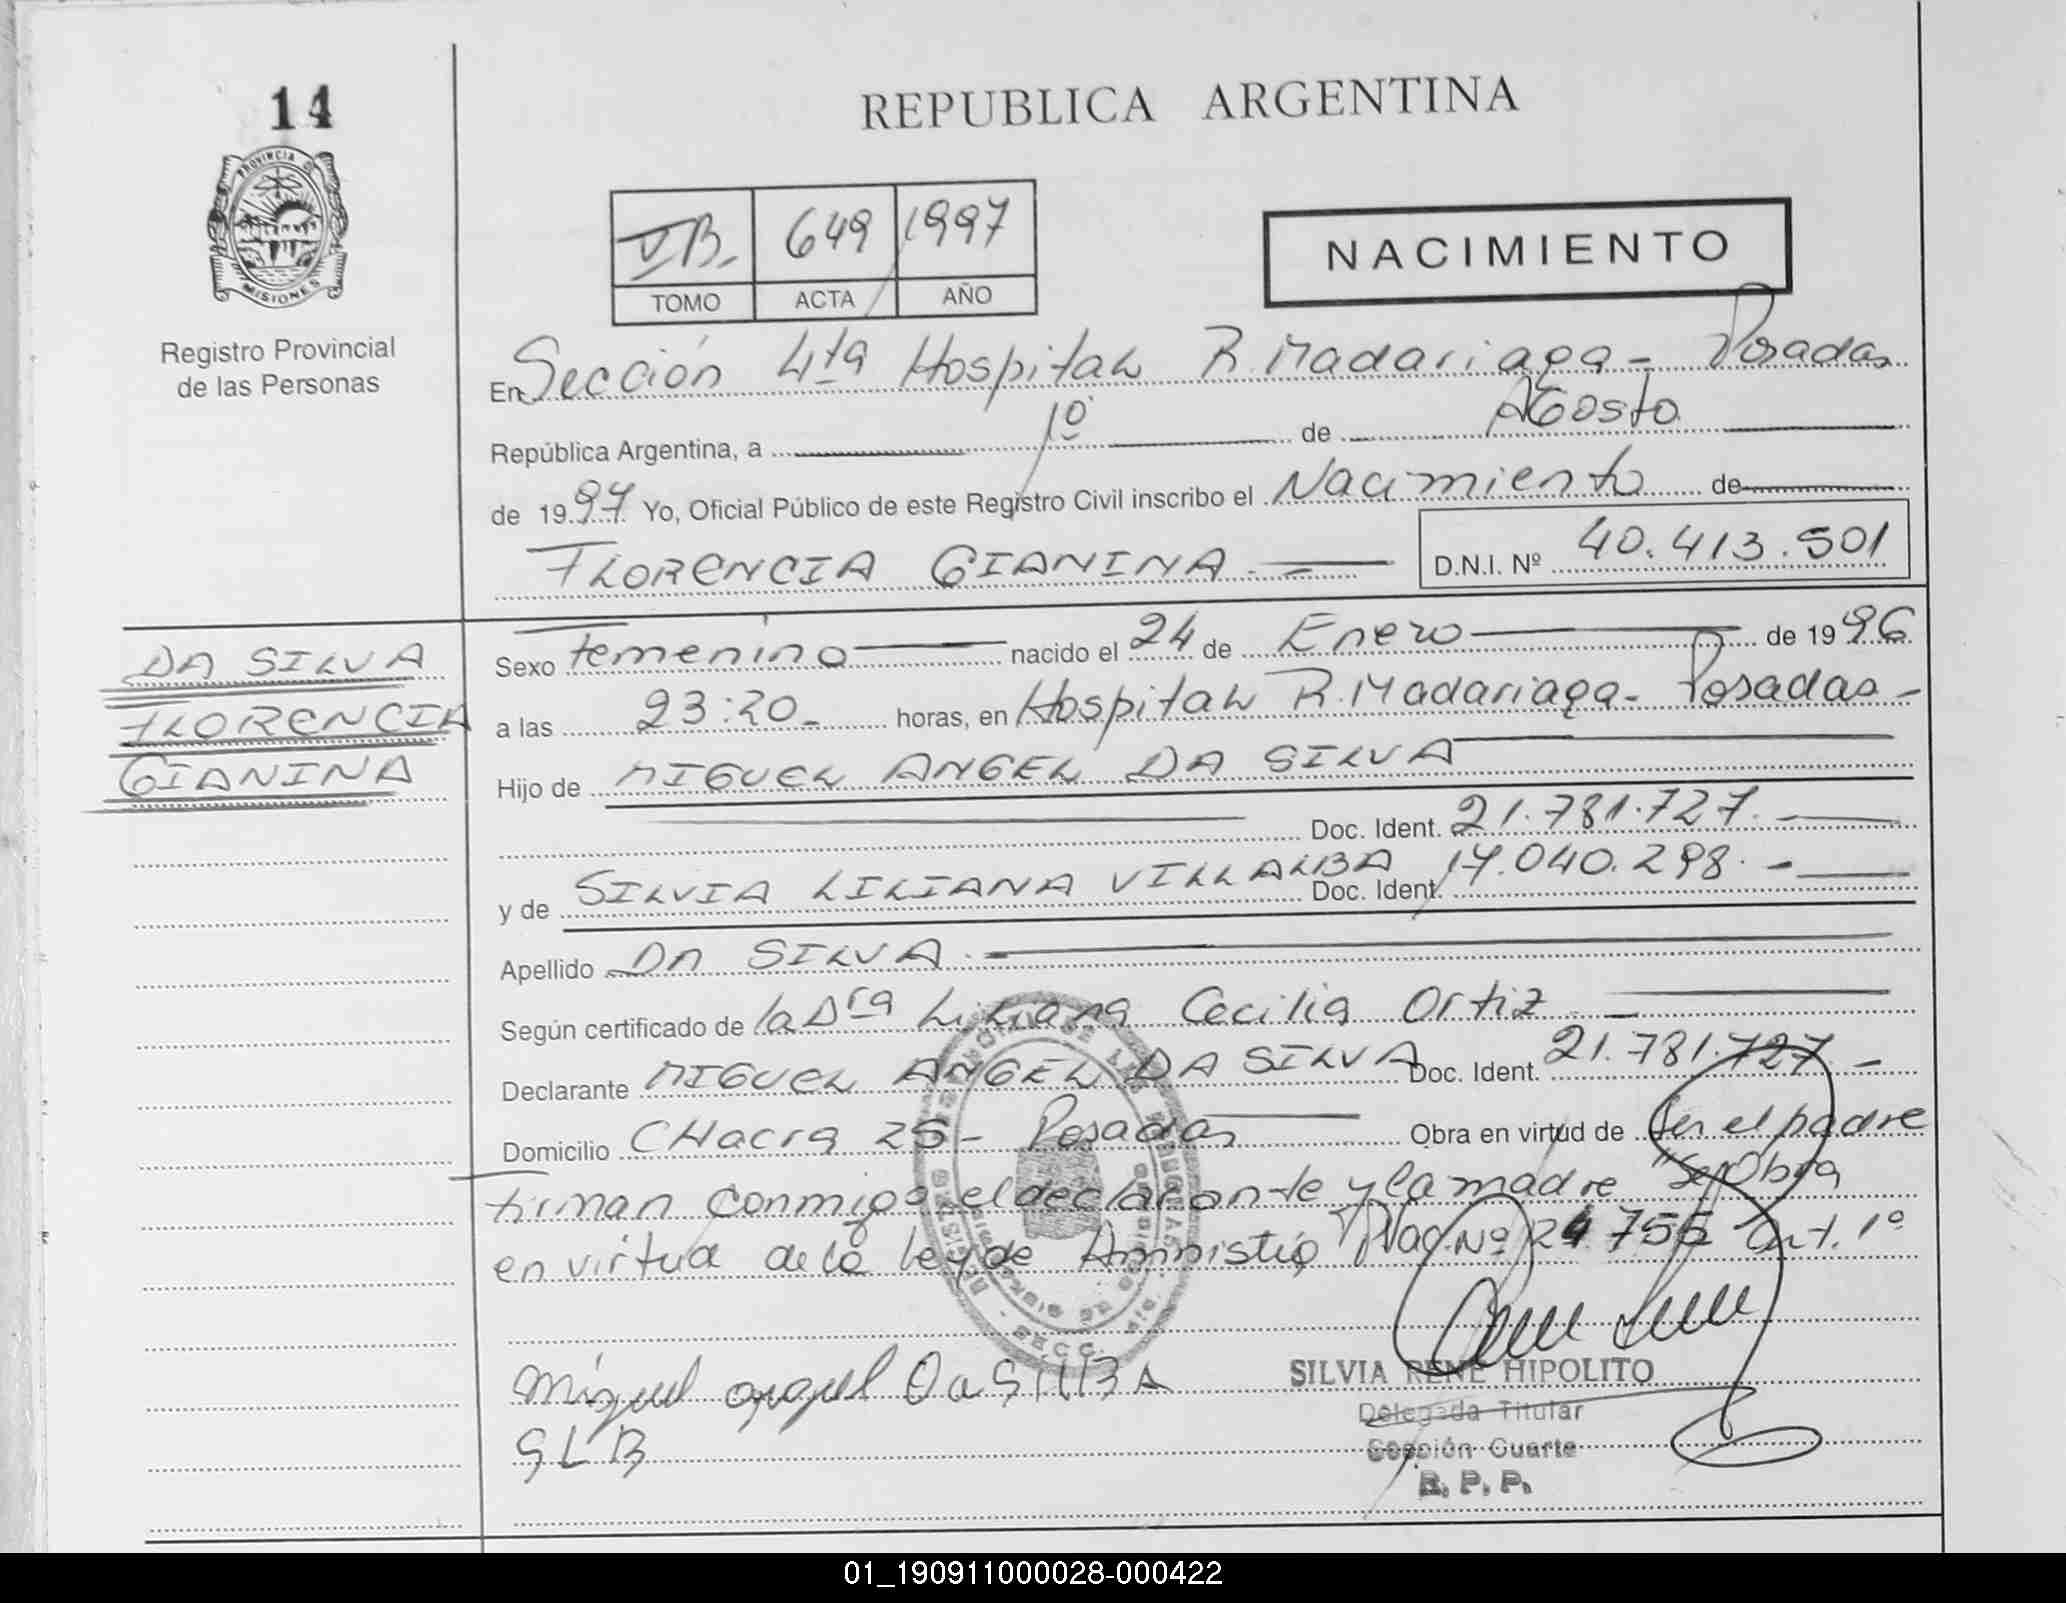 14
REPUBLICA ARGENTINA
PROVINCIA DE
MISIONES
Registro Provincial
de las Personas
VB. 649 1997
TOMO ACTA AÑO
NACIMIENTO
En Sección 4ta Hospital R. Madariaga - Posadas
República Argentina, a 1º de Agosto
de 1997 Yo, Oficial Público de este Registro Civil inscribo el Nacimiento de
FLORENCIA GIANINA. D.N.I. Nº 40.413.501
DA SILVA
FLORENCIA
GIANINA
Sexo Femenino nacido el 24 de Enero de 1996
a las 23:20 horas, en Hospital R. Madariaga - Posadas -
Hijo de MIGUEL ANGEL DA SILVA
Doc. Ident. 21.781.727. -
y de SILVIA LILIANA VILLALBA Doc. Ident. 17.040.298. -
Apellido DA SILVA. -
Según certificado de la Dra Liliana Cecilia Ortiz. -
Declarante MIGUEL ANGEL DA SILVA Doc. Ident. 21.781.727. -
Domicilio CHacra 25 - Posadas Obra en virtud de Ser el padre
Firman conmigo el declarante y la madre "Se Obra
en virtud de la Ley de Amnistia Nac. Nº 24755 Art. 1º
Miguel angel Da SilBA
SLB
SILVIA RENE HIPOLITO
Delegada Titular
Sección Cuarta
R. P. P.
01_190911000028-000422